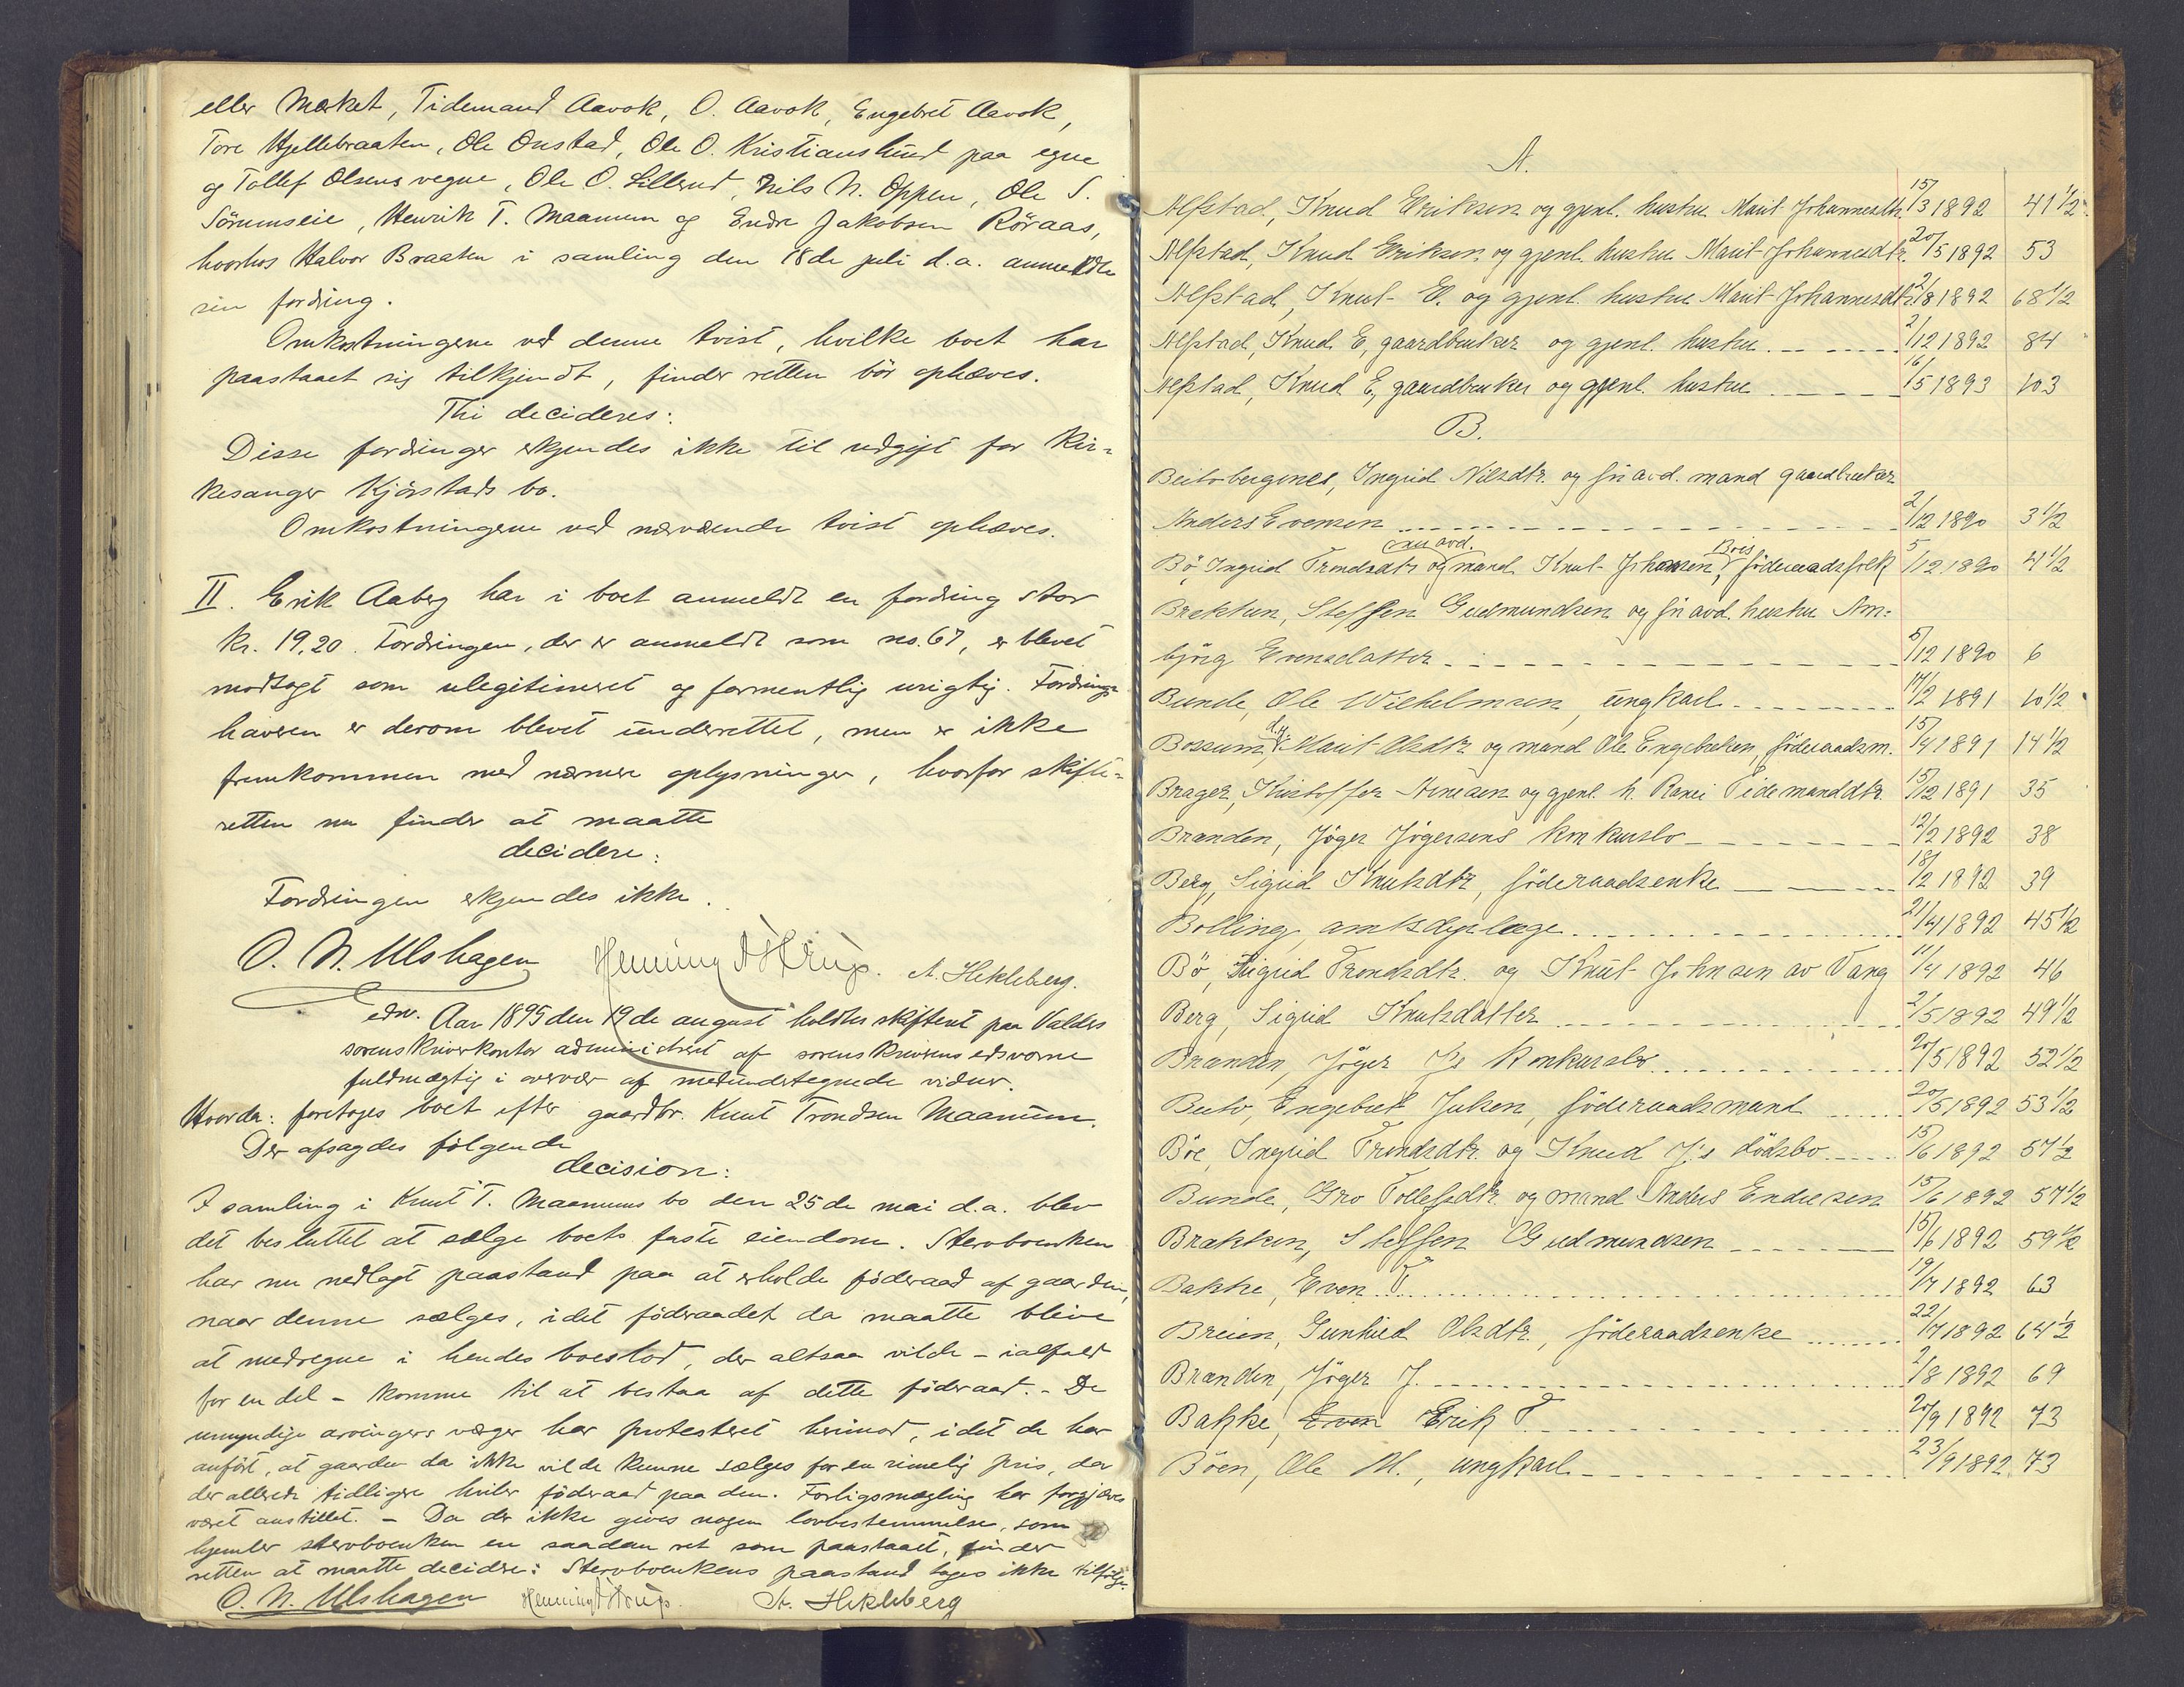 eller Mørket, Tidemand Aavok, O. Aavok, Engebret Aavok,
Tore Hjellebraaten, Ole Onstad, Ole O. Kristianslund paa egne
og Tollef Olsens vegne, Ole O. Lillerud, Nils N. Oppen, Ole S.
Sörumseie, Henrik T. Maanum og Endre Jakobsen Röraas,
hvorhos Halvor Braaten i samling den 18de juli d.a. anmeldte
sin fordring.
Omkostningerne ved denne tvist, hvilke boet har
paastaaet sig tilkjendt, finder retten bör ophæves.
Thi decideres:
Disse fordringer erkjendes ikke til udgift for Kir-
kesanger Kjörstads bo.
Omkostningerne ved nærværende tvist ophæves.
II. Erik Aaberg har i boet anmeldt en fordring stor
kr. 19,20. Fordringen, der er anmeldt som no. 67, er blevet
modsagt som ulegitimeret og formentlig urigtig. Fordrings-
haveren er derom blevet underrettet, men er ikke
fremkommen med nærmere oplysninger, hvorfor skifte-
retten nu finder at maatte
decidere:
Fordringen erkjendes ikke.
O. N. Ulshagen Henning A. Hekleberg.
edsv. Aar 1895 den 19de august holdtes skifteret paa Valdres
sorenskriverkontor administreret af sorenskriverens edsvorne
fuldmægtig i overvær af medundertegnede vidner.
Hvorda: foretoges boet efter gaardbr. Knut Trondsen Maanum.
Der afsagdes følgende
decision:
I samling i Knut T. Maanums bo den 25de mai d.a. blev
det besluttet at sælge boets faste eiendom. Stervboenken
har nu nedlagt paastand paa at erholde föderaad af gaarden,
naar denne sælges, idet föderaadet da maatte blive
at medregne i hendes boeslod, der altsaa vilde - ialfald
for en del - komme til at bestaa af dette föderaad. - De
umyndige arvingers værger har protesteret herimod, idet de har
anfört, at gaarden da ikke vilde kunne sælges for en rimelig pris, da
der allerede tidligere hviler föderaad paa den. Forligsmægling har forgjæves
været anstillet. - Da der ikke gives nogen lovbestemmelse, som
hjemler stervboenken en saadan ret som paastaaet, finder
retten at maatte decidere: Stervboenkens paastand tages ikke tilfølge.
O. N. Ulshagen Henning A. Hekleberg
A.
Alfstad, Knud Eriksen og gjenl. hustru Marit Johannesdtr. 15/3 1892 41 1/2
Alfstad, Knud Eriksen og gjenl. hustru Marit Johannesdtr. 20/5 1892 53
Alfstad, Knut E. og gjenl. hustru Marit Johannesdtr. 2/8 1892 68 1/2
Alfstad, Knud E, gaardbruker og gjenl. hustru 2/12 1892 84
Alfstad, Knud E, gaardbruker og gjenl. hustru 6/5 1893 103
B.
Beitobergenes, Ingrid Nilsdtr. og fn avd. mand gaardbruker
Anders Evensen 2/12 1890 3 1/2
nu avd. Bøis
Bö, Ingrid Trondsdtr og mand Knut Johansen, föderaadsfolk 5/12 1890 4 1/2
Brekken, Steffen Gudmundsen og fn avd. hustru Am-
björg Evensdatter 5/12 1890 6
Bunde, Ole Wilhelmsen, ungkarl 17/2 1891 10 1/2
Bossum, Marit Olsdtr og mand Ole Engebretsen, föderaadsm. 15/4 1891 14 1/2
Brager, Kristoffer Arnesen og gjenl. h. Rønei Tidemanddtr. 15/12 1891 35
Branden, Jöger Jögersens konkursbo 12/2 1892 38
Berg, Sigrid Knutsdtr, föderaadsenke 18/2 1892 39
Bolling, amtsdyrlæge 21/4 1892 45 1/2
Bö, Ingrid Trondsdtr. og Knut Johnsen av Vang 11/4 1892 46
Berg, Sigrid Knutsdatter 2/5 1892 49 1/2
Branden, Jöger J's konkursbo 20/5 1892 52 1/2
Beito, Engebret Julsen, föderaadsmand 20/5 1892 53 1/2
Böe, Ingrid Trondsdtr. og Knud J's dödsbo 15/6 1892 57 1/2
Bunde, Gro Tollefsdtr. og mand Anders Endresen 15/6 1892 57 1/2
Brakken, Steffen Gudmundsen 15/6 1892 59 1/2
Bakke, Even T 19/7 1892 63
Breien, Gunhild Olsdtr, föderaadsenke 22/7 1892 64 1/2
Branden, Jöger J. 2/8 1892 69
Bakke, Even Erik T 20/9 1892 73
Böen, Ole M., ungkarl 23/9 1892 73